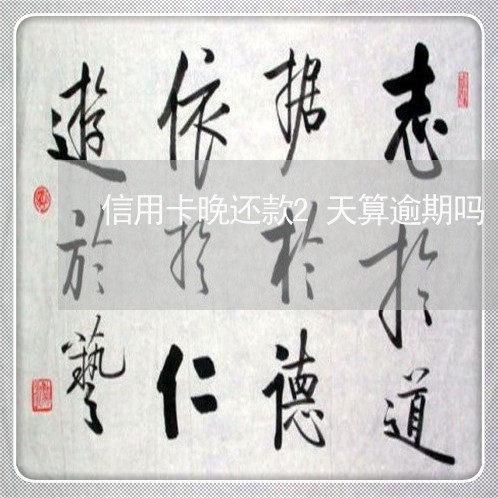 志於道
据於德
依於仁
遊於藝
信用卡晚还款2天算逾期吗